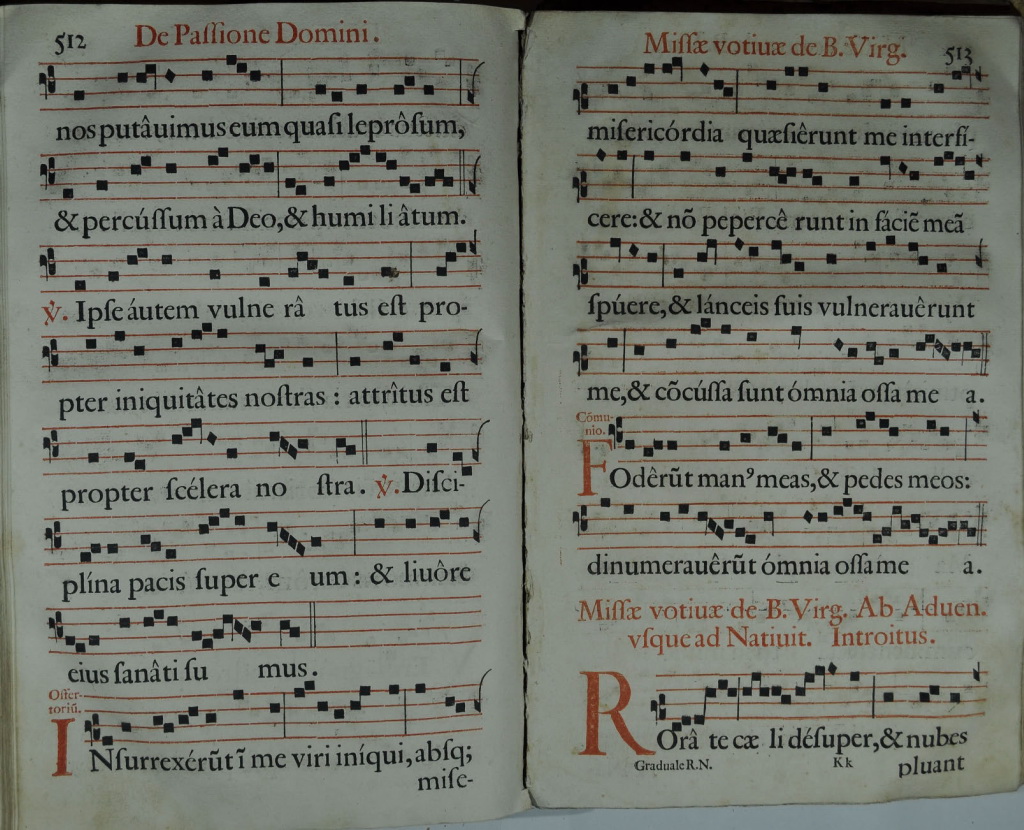 512 De Paſſione Domini.
nos putâuimus eum quaſi leprôſum,
& percúſſum à Deo, & humi li âtum.
℣. Ipſe áutem vulne râ tus eſt pro-
pter iniquitâtes noſtras : attrîtus eſt
propter ſcélera no ſtra. ℣. Diſci-
plína pacis ſuper e um : & liuôre
eius ſanâti ſu mus.
Offer-
toriũ.
INſurrexérũt ĩ me viri iníqui, abſq;
miſe-
Miſſæ votiuæ de B. Virg. 513
miſericórdia quæſiêrunt me interfí-
cere: & nõ pepercê runt in fáciẽ meã
ſpúere, & lánceis ſuis vulnerauêrunt
me, & cõcúſſa ſunt ómnia oſſa me a.
Cõmu-
nio.
FOdêrũt manꝰ meas, & pedes meos:
dinumerauêrũt ómnia oſſa me a.
Miſſæ votiuæ de B. Virg. Ab Aduen.
vſque ad Natiuit. Introitus.
ROrâ te cæ li déſuper, & nubes
Graduale R.N. Kk pluant